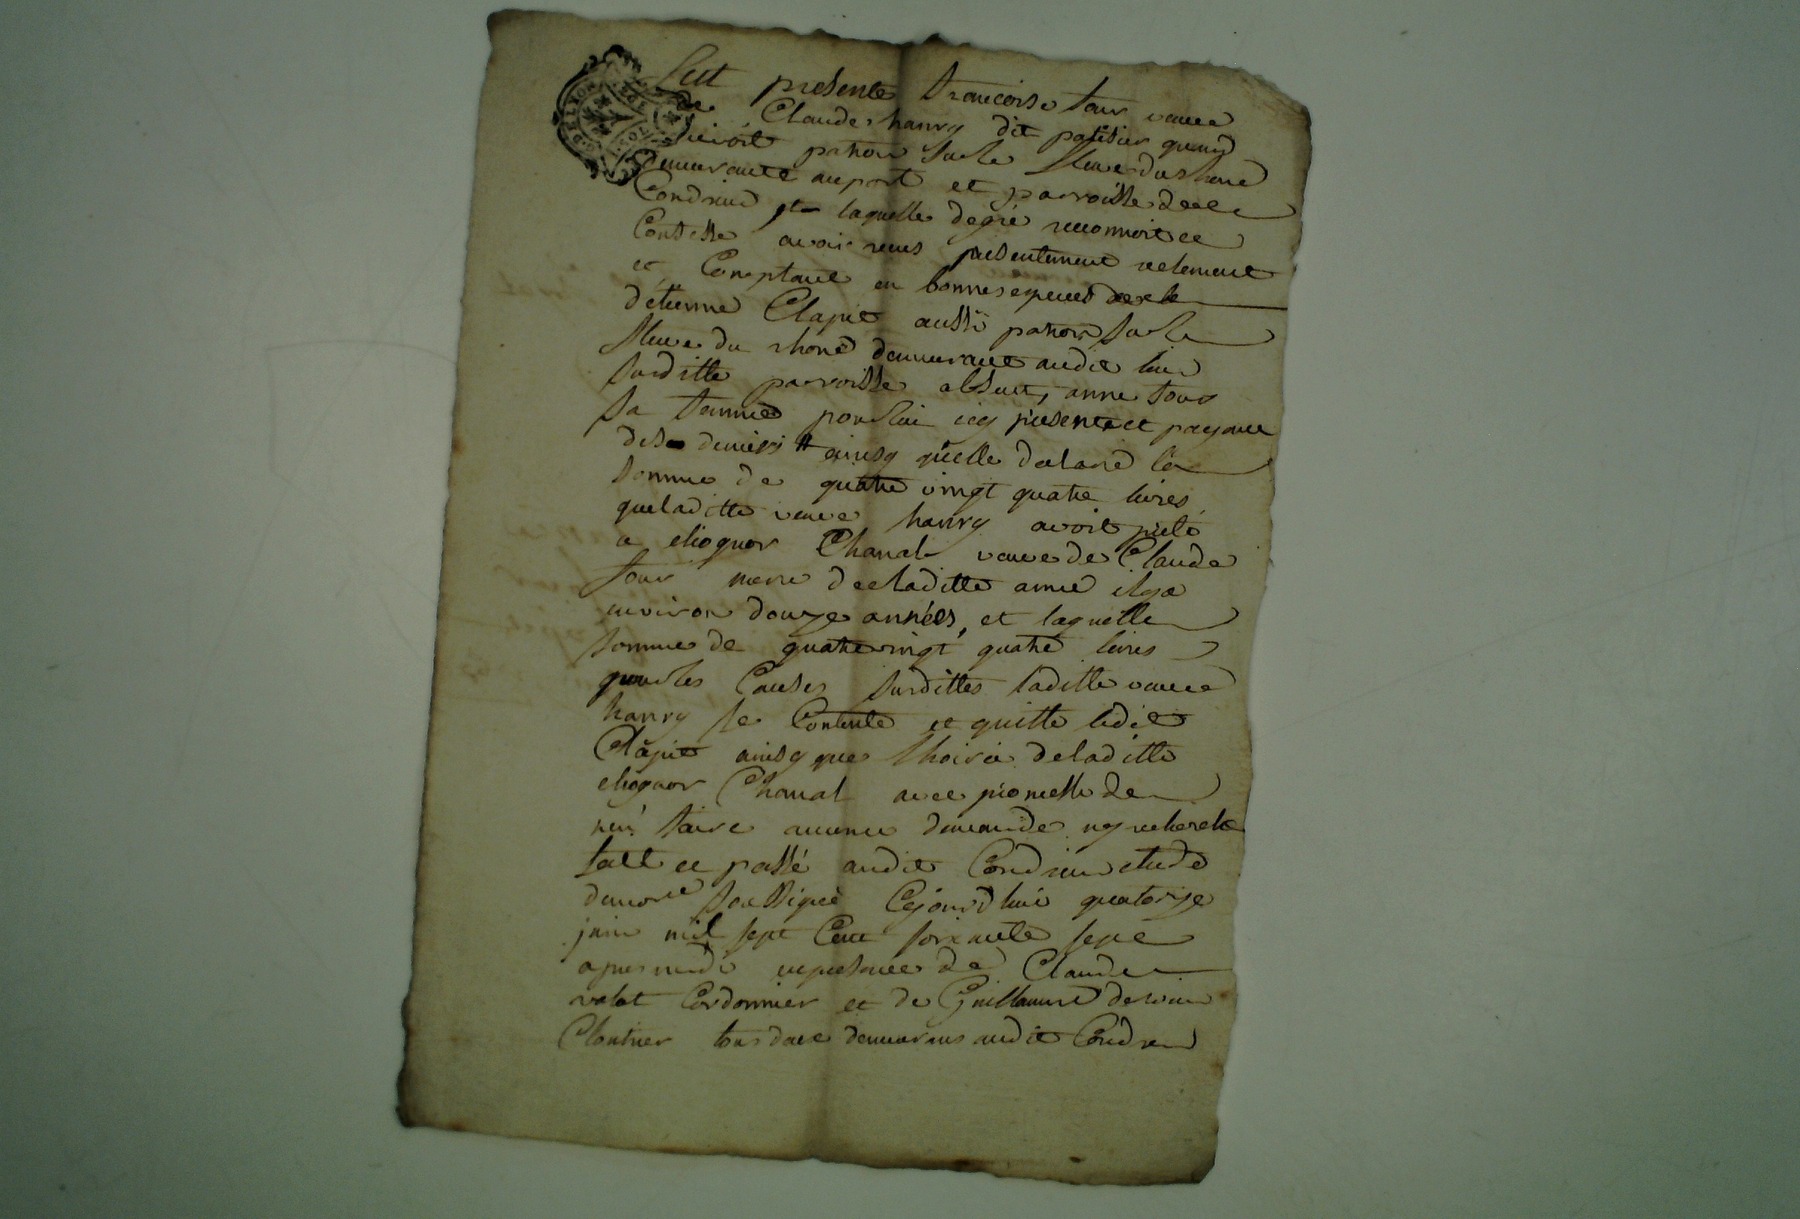 fut presente francoise four veuve
de Claude hanry dit patisier quand
vivoit patron sur le fleuve du rhone
demeurante au port et parroisse de
Condrieu laquelle degré reconnoit et
Confesse avoir reçus presentement reelement
et Comptant en bonnes especes de
d'etienne Clapit aussi patron sur le
fleuve du rhone demeurant audit lieu
susditte parroisse absent, anne four
sa femme pour lui icy presente et payant
des deniers ainsy qu'elle declare la
somme de quatre vingt quatre livres
que laditte veuve hanry avoit preté
a Chanal veuve de Claude
four mere de laditte anne il y a
environ douze années, et laquelle
somme de quatre vingt quatre livres
pour les Causes susdittes laditte veuve
hanry se Contente et quitte ledit
Clapit ainsy que l'hoirie de laditte
Chanal avec promesse de
n'en faire aucune demande ny recherche
fait et passé audit Condrieu etude
du nore soussigné Cejourd'hui quatorze
juin mil sept Cent soixante sept
apres midi en presence de Claude
valet Cordonnier et de Guillaume
Cloutier tous deux demeurans audit Condrieu